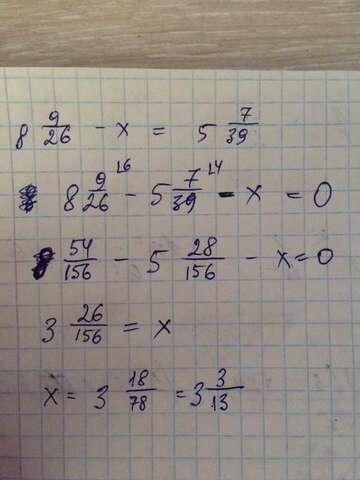 8 9/26 - x = 5 7/39
8 9/26 |6 - 5 7/39 |4 - x = 0
8 54/156 - 5 28/156 - x = 0
3 26/156 = x
x = 3 18/78 = 3 3/13